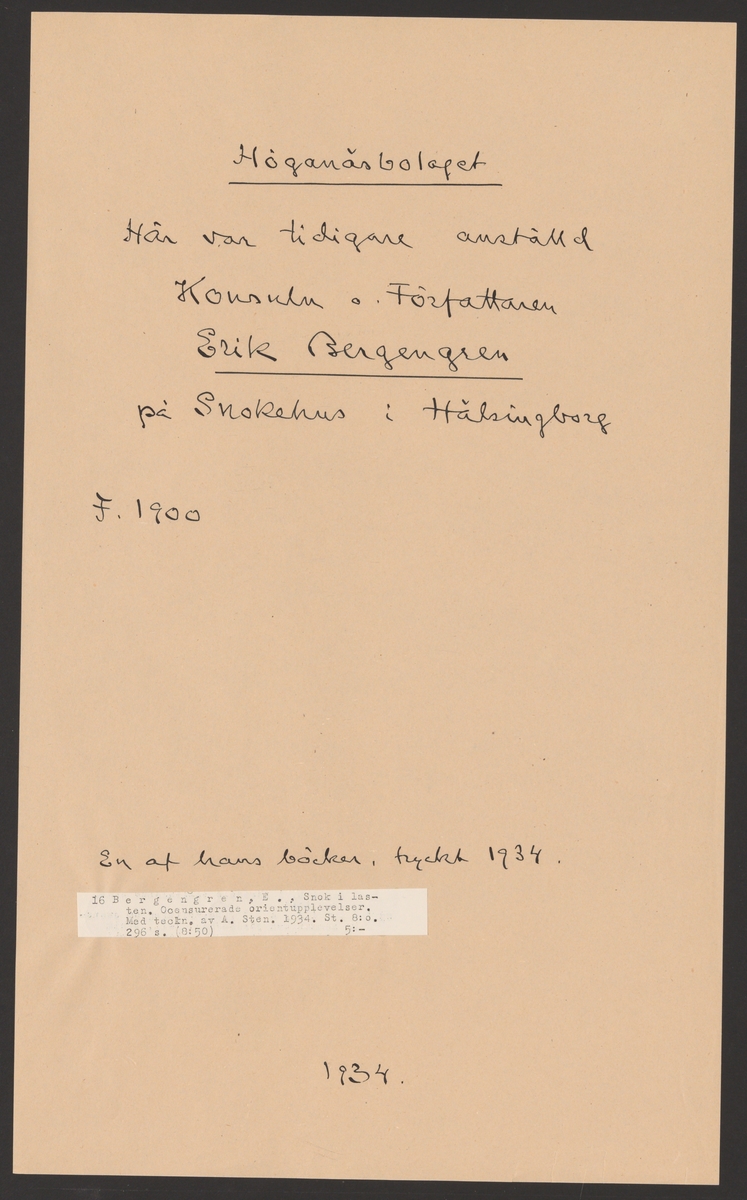 Höganäsbolaget
Här var tidigare anställd
Konsuln o. Författaren
Erik Bergengren
på Snokehus i Hälsingborg
F. 1900
En af hans böcker, tryckt 1934.
16 Bergengren, E., Snok i las-
ten. Ocensurerade orientupplevelser.
Med teckn. av A. Sten. 1934. St. 8:o.
296 s. (8:50) 5:-
1934.